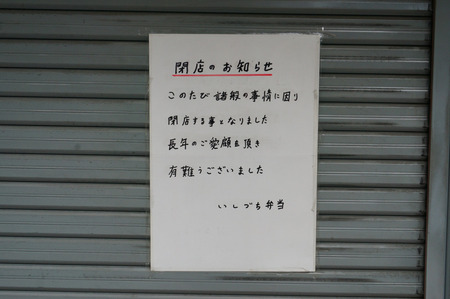 閉店のお知らせ
このたび諸般の事情に因り
閉店する事となりました
長年のご愛顧を頂き
有難うございました
いしづち弁当